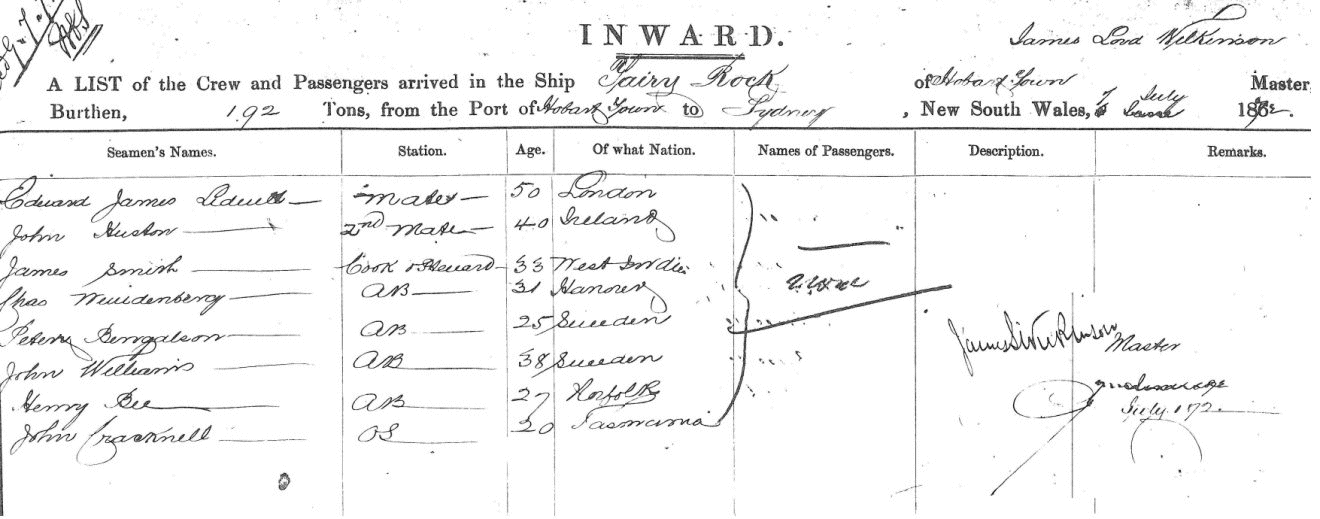 INWARD.
James Lord Wilkinson
A LIST of the Crew and Passengers arrived in the Ship Fairy Rock of Hobart Town Master
Burthen, 192 Tons, from the Port of Hobart Town to Sydney, New South Wales, July 1872.
Seamen's Names. Station. Age. Of what Nation. Names of Passengers. Description. Remarks.
Edward James Mate 50 London
John Huston 2nd Mate 40 Ireland
James Smith Cook & Steward 33 West Indies
Chas AB 31 Hanover
Peter Bengalson AB 25 Sweden
John Williams AB 38 Sweden
Henry Bee AB 27 Norfolk
John Cracknell OS 20 Tasmania
Master
July 172